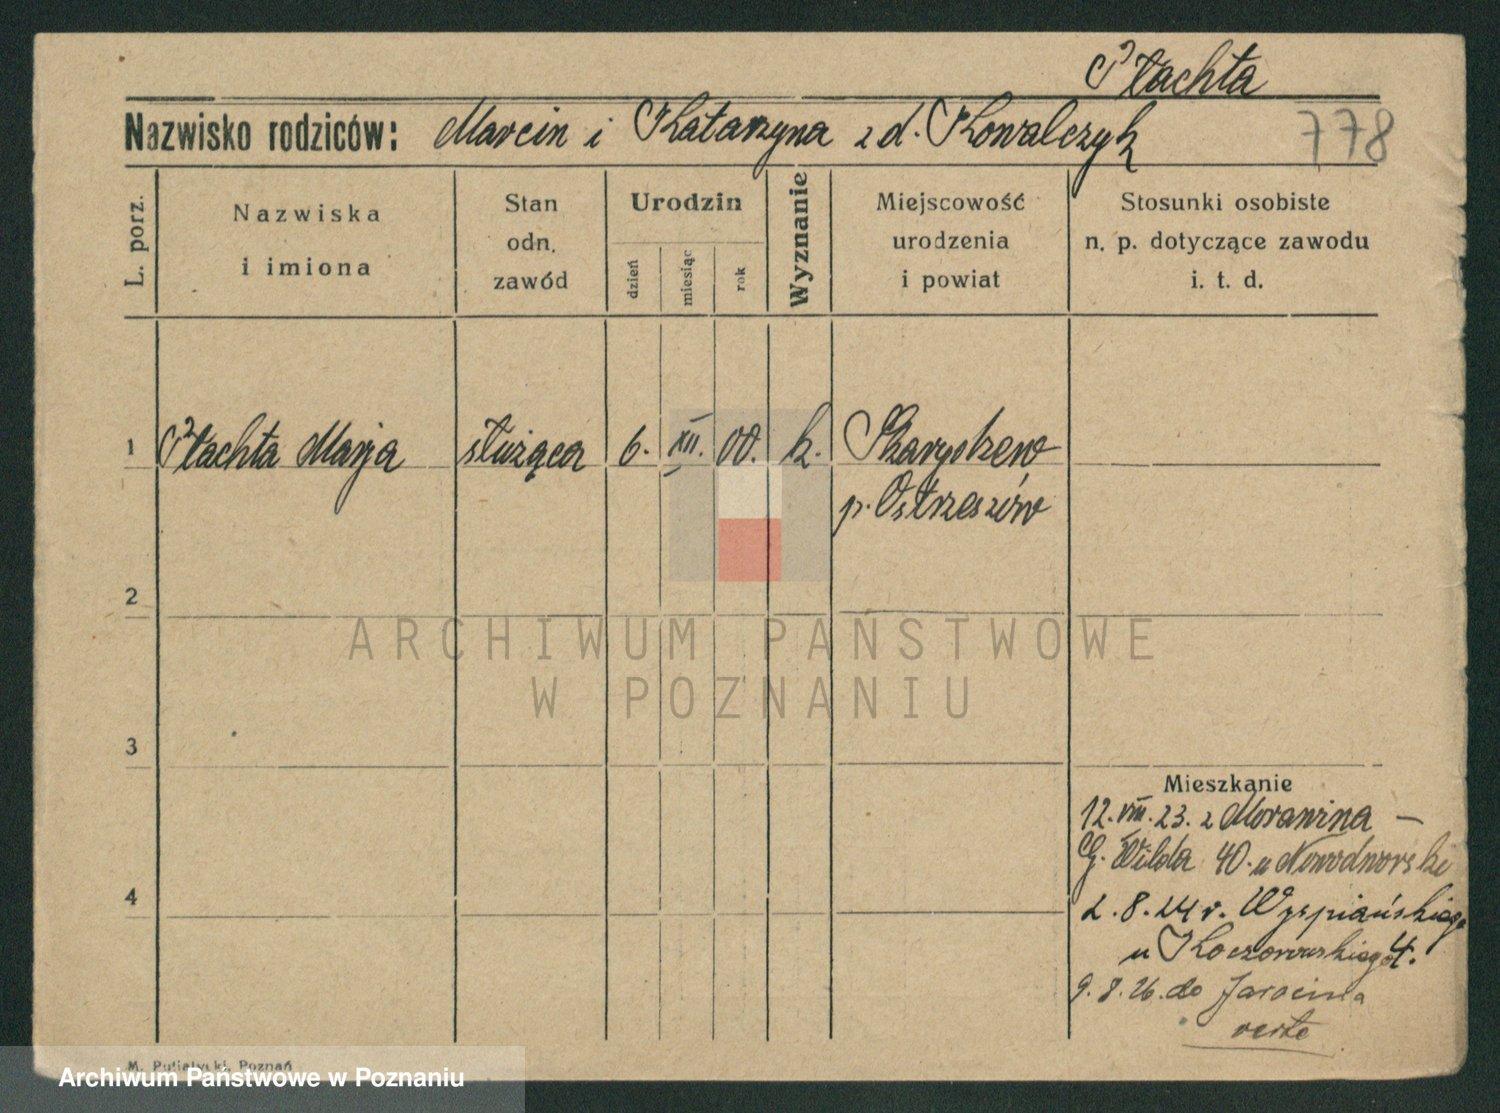 Płachta
Nazwisko rodziców: Marcin i Katarzyna z d. Kowalczyk
778
L. porz.
Nazwiska
i imiona
Stan
odn.
zawód
Urodzin
dzień
miesiąc
rok
Wyznanie
Miejscowość
urodzenia
i powiat
Stosunki osobiste
n. p. dotyczące zawodu
i. t. d.
1 Płachta Marja służąca 6. XII. 00. k.
p. Ostrzeszów
2
ARCHIWUM PAŃSTWOWE
W POZNANIU
3
Mieszkanie
12. VIII. 23. z Morawina —
G. Wilda 40. u Nowodworski
4
2. 8. 24 r. Wyspiańskiego
u Koczorowskiego 4.
9. 8. 26. do Jarocina
verte
M. Putiatycki, Poznań
Archiwum Państwowe w Poznaniu